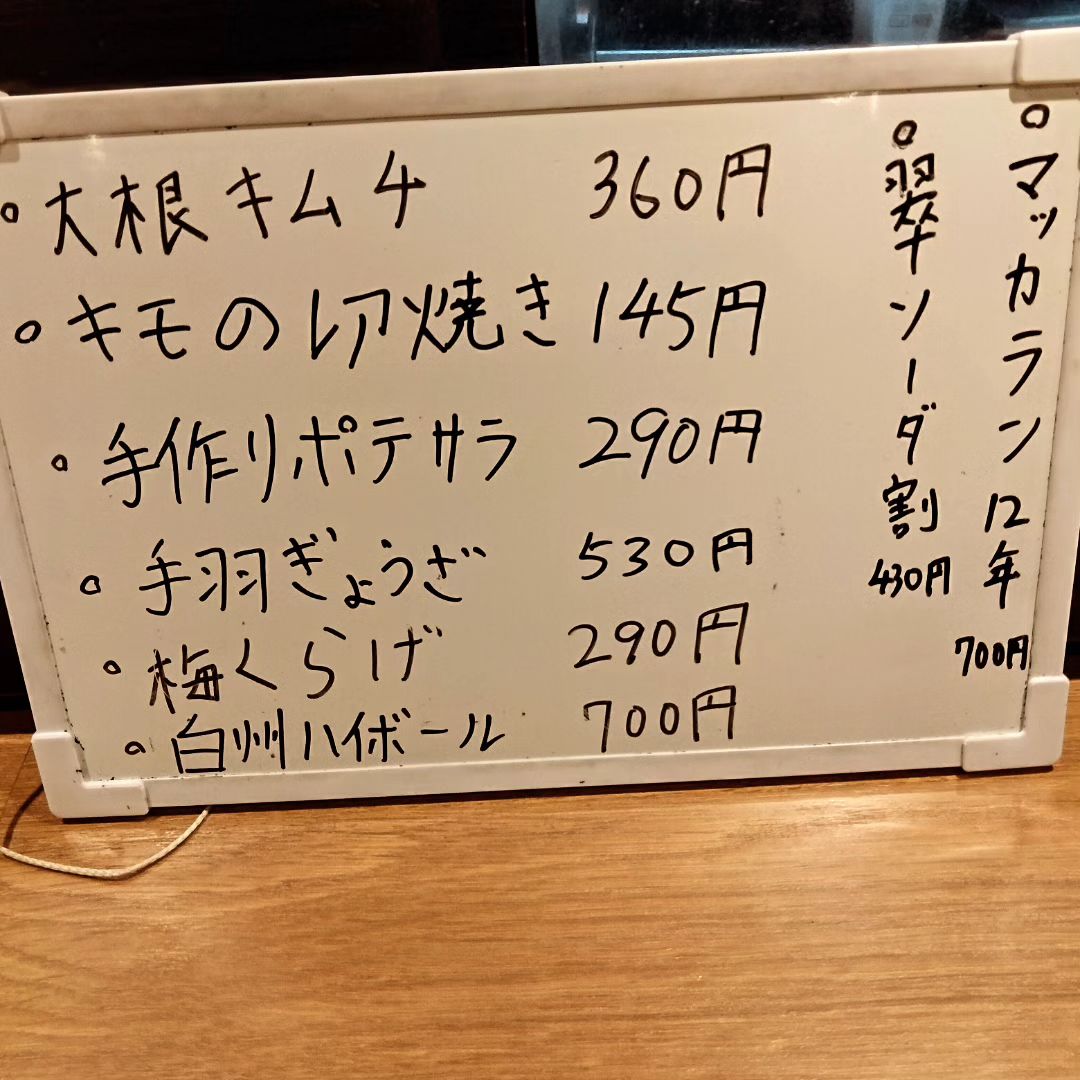 ○大根キムチ 360円
○キモのレア焼き 145円
○手作りポテサラ 290円
○手羽ぎょうざ 530円
○梅くらげ 290円
○白州ハイボール 700円
○マッカラン12年 700円
○翠ソーダ割 430円